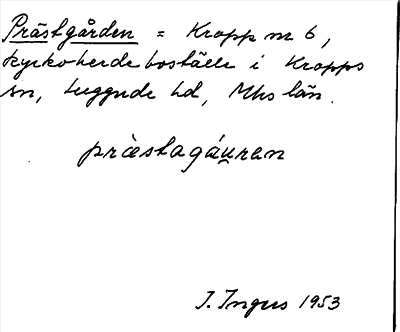 Prästgården = Kropp nr 6,
kyrkoherdeboställe i Kropps
sn, Luggude hd, Mhs län.
præstagáu̯ran
I. Ingers 1953